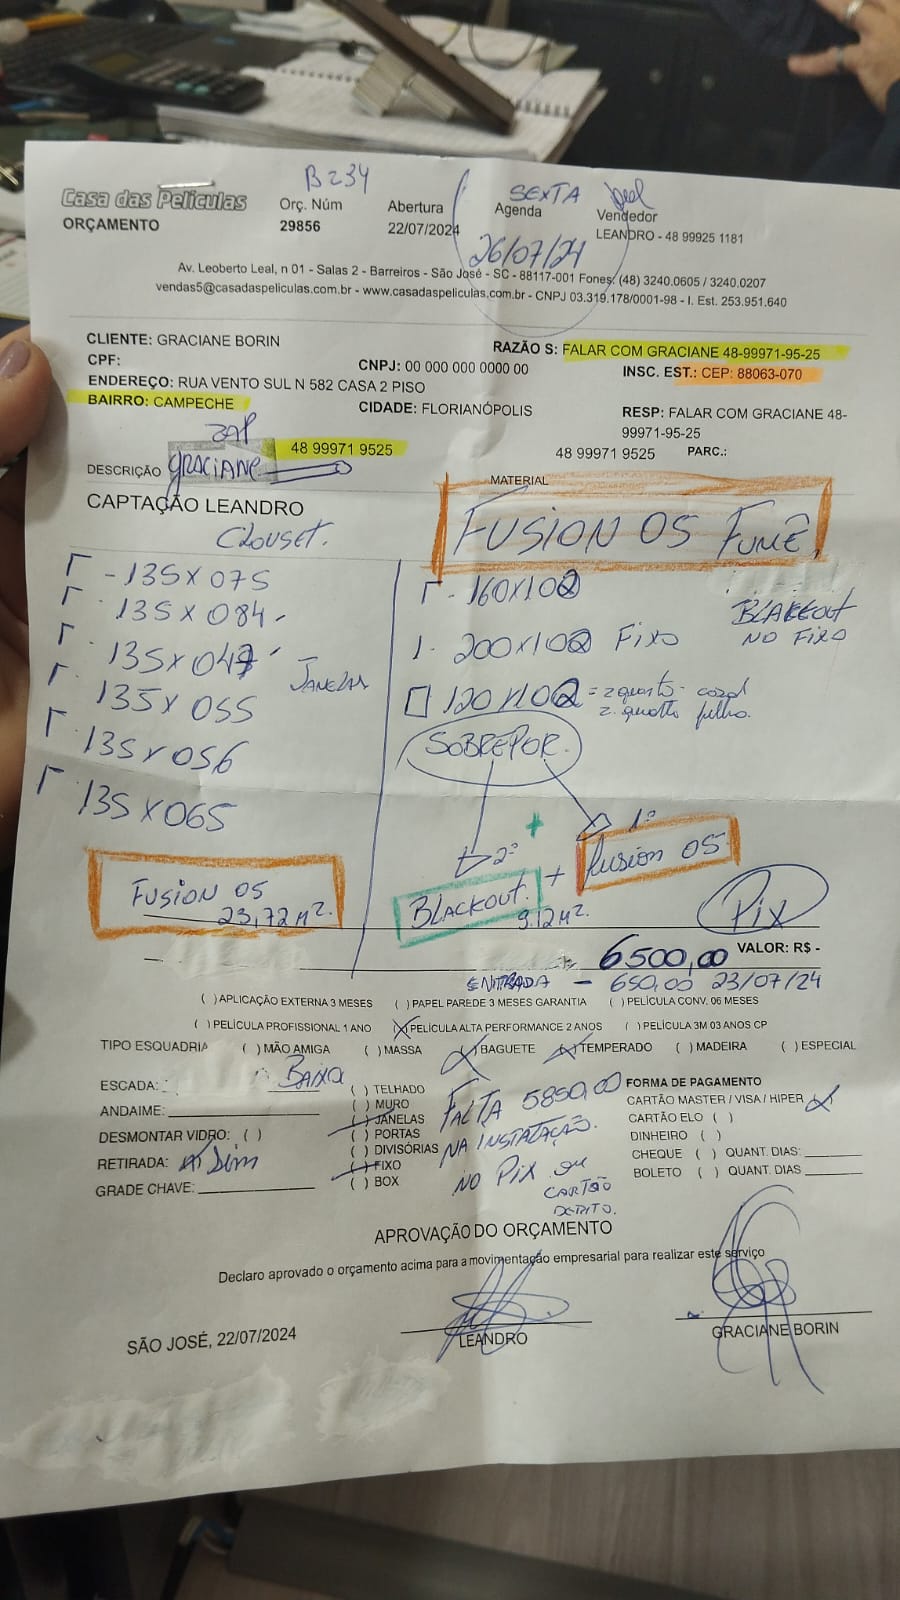 B234
Casa das Películas
ORÇAMENTO
Orç. Núm
29856
Abertura
22/07/2024
SEXTA
Agenda
26/07/24
Vendedor
LEANDRO - 48 99925 1181
Av. Leoberto Leal, n 01 - Salas 2 - Barreiros - São José - SC - 88117-001 Fones: (48) 3240.0605 / 3240.0207
vendas5@casadaspeliculas.com.br - www.casadaspeliculas.com.br - CNPJ 03.319.178/0001-98 - I. Est. 253.951.640
CLIENTE: GRACIANE BORIN
RAZÃO S: FALAR COM GRACIANE 48-99971-95-25
CPF:
CNPJ: 00 000 000 0000 00
INSC. EST.: CEP: 88063-070
ENDEREÇO: RUA VENTO SUL N 582 CASA 2 PISO
BAIRRO: CAMPECHE
CIDADE: FLORIANÓPOLIS
RESP: FALAR COM GRACIANE 48-
99971-95-25
ZAP
48 99971 9525
48 99971 9525
PARC.:
DESCRIÇÃO
GRACIANE
MATERIAL
CAPTAÇÃO LEANDRO
FUSION 05 FUMÊ
CLOUSET.
- 135 X 075
135 X 084
135 X 047
JANELAS
135 X 055
135 X 056
135 X 065
160X102
BLACKOUT
NO FIXO
200X102 FIXO
120X102 = 2 quarto - casal
2. quarto filho.
SOBREPOR.
1º
2º
FUSION 05
23,72 M².
BLACKOUT. + Fusion 05
9,12 M².
Pix
6500,00 VALOR: R$ -
ENTRADA - 650,00 23/07/24
( ) APLICAÇÃO EXTERNA 3 MESES ( ) PAPEL PAREDE 3 MESES GARANTIA ( ) PELÍCULA CONV. 06 MESES
( ) PELÍCULA PROFISSIONAL 1 ANO (X) PELÍCULA ALTA PERFORMANCE 2 ANOS ( ) PELÍCULA 3M 03 ANOS CP
TIPO ESQUADRIA ( ) MÃO AMIGA ( ) MASSA (X) BAGUETE (X) TEMPERADO ( ) MADEIRA ( ) ESPECIAL
ESCADA: BAIXA
ANDAIME:
DESMONTAR VIDRO: ( )
RETIRADA: Sim
GRADE CHAVE:
( ) TELHADO
( ) MURO
(X) JANELAS
( ) PORTAS
( ) DIVISÓRIAS
(X) FIXO
( ) BOX
FALTA 5850,00
NA INSTALAÇÃO.
NO PIX ou
CARTÃO
DEBITO.
FORMA DE PAGAMENTO
CARTÃO MASTER / VISA / HIPER (X)
CARTÃO ELO ( )
DINHEIRO ( )
CHEQUE ( ) QUANT. DIAS:
BOLETO ( ) QUANT. DIAS
APROVAÇÃO DO ORÇAMENTO
Declaro aprovado o orçamento acima para a movimentação empresarial para realizar este serviço
SÃO JOSÉ, 22/07/2024
LEANDRO
GRACIANE BORIN